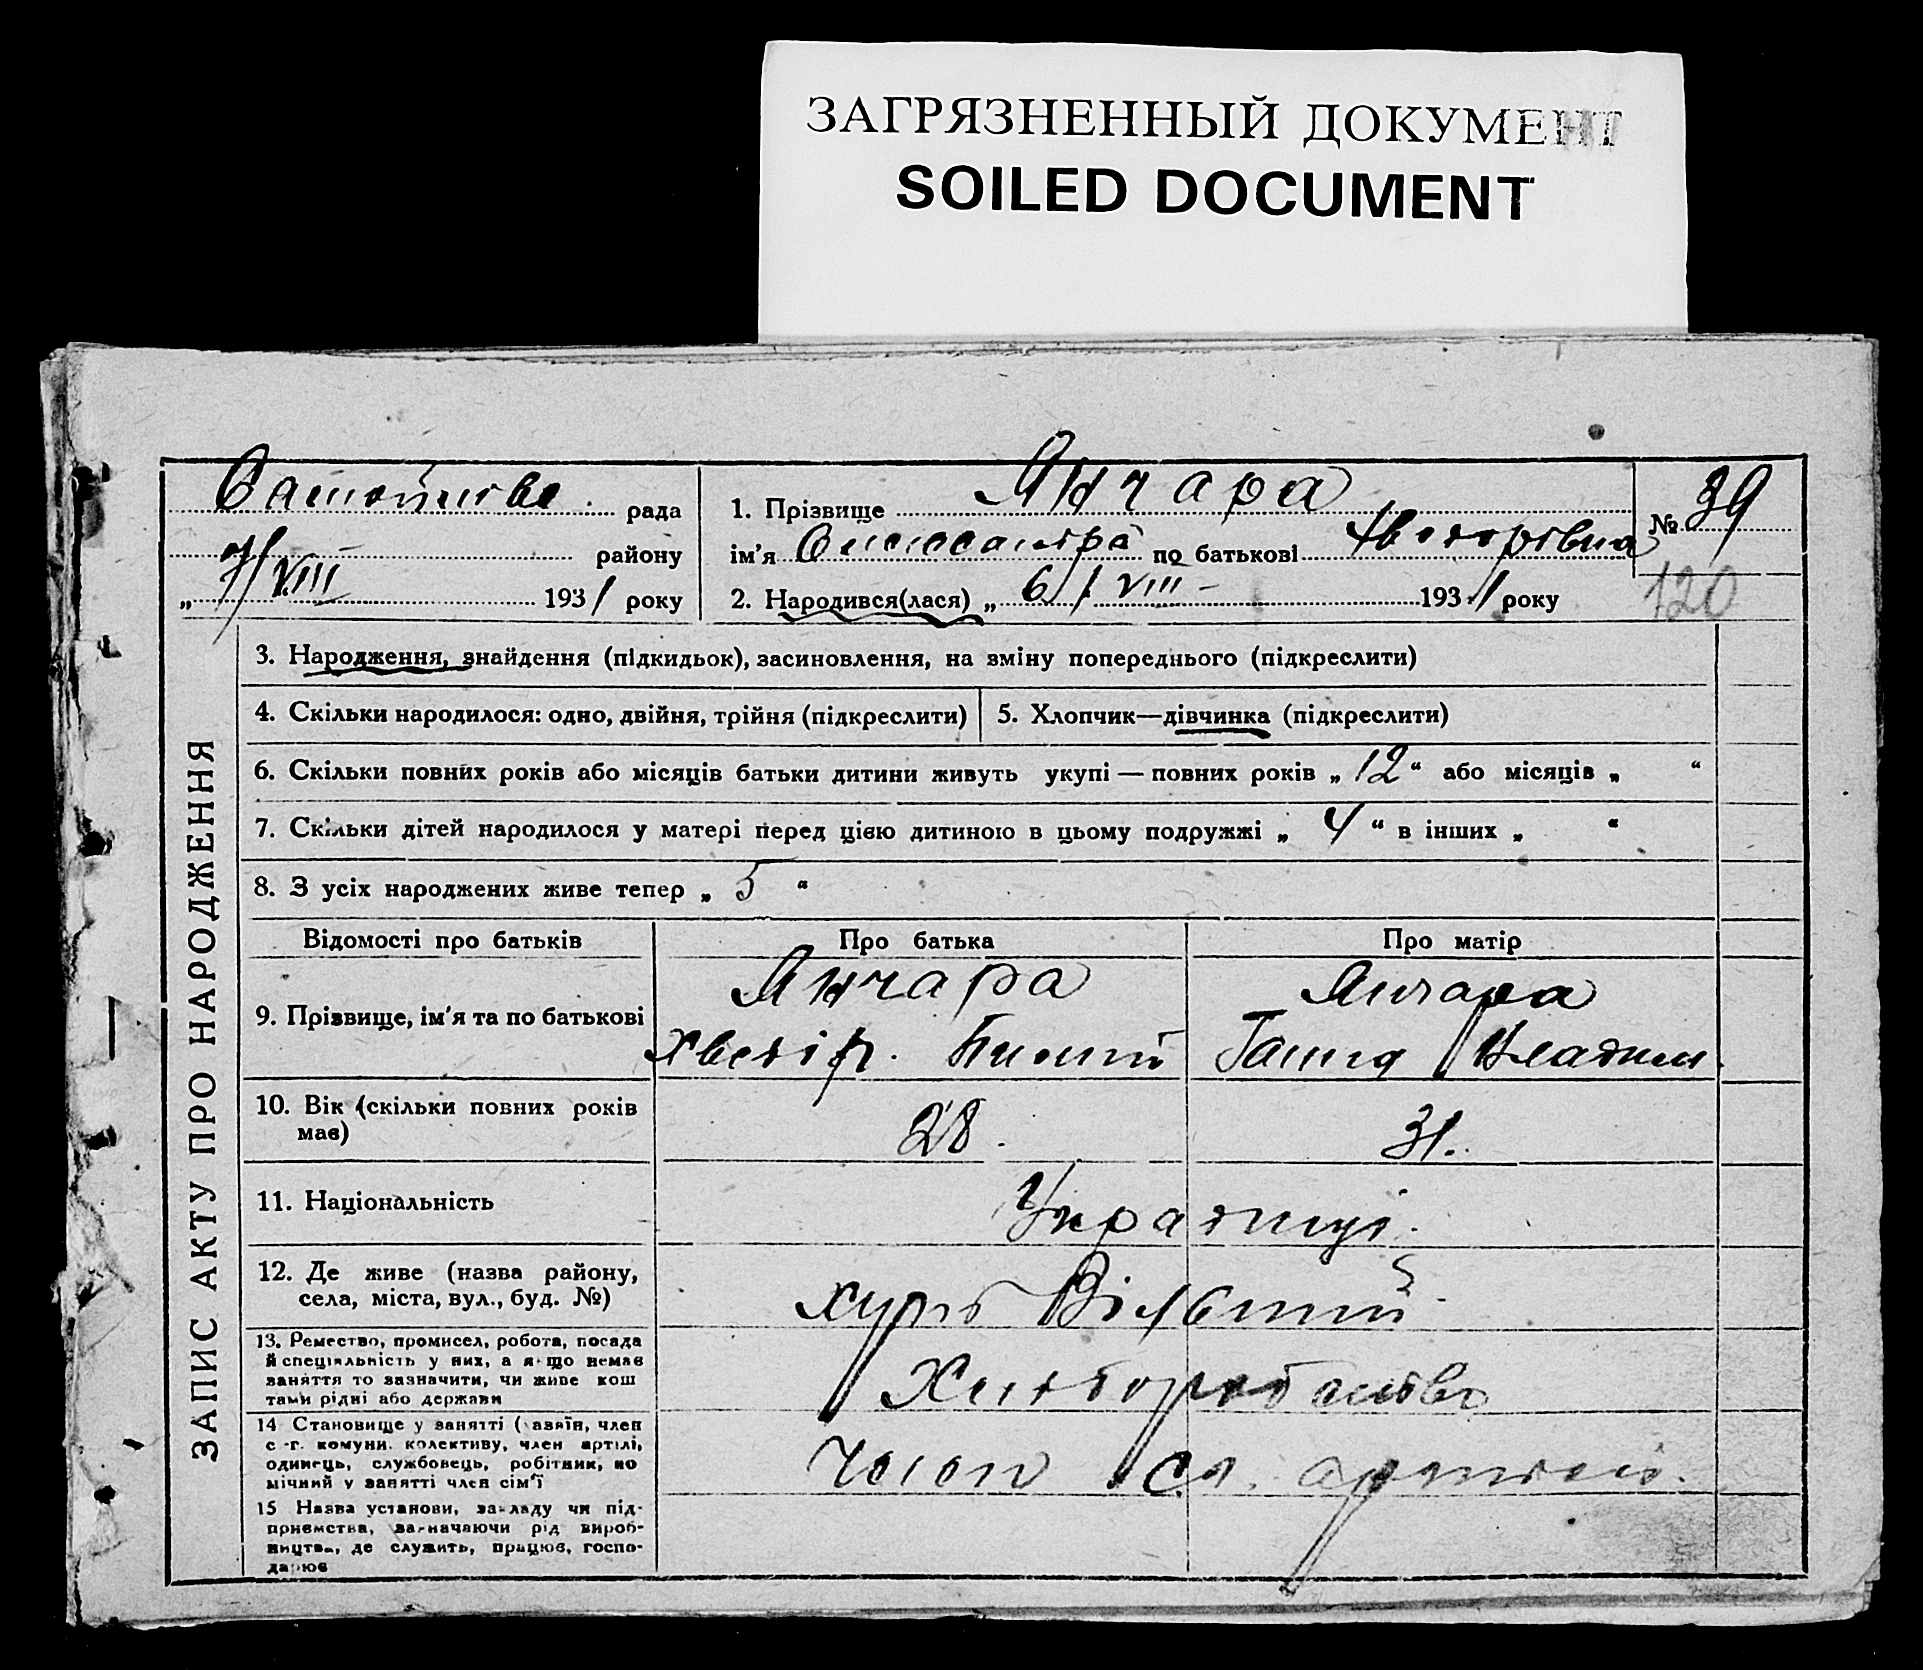 ЗАГРЯЗНЕННЫЙ ДОКУМЕНТ
SOILED DOCUMENT
рада
району
„ 7/VIII 1931 року
1. Прізвище Янчара
ім'я по батькові Хведорівна
2. Народився(лася) „ 6/VIII - 1931 року
№ 39
120
ЗАПИС АКТУ ПРО НАРОДЖЕННЯ
3. Народження, знайдення (підкидьок), засиновлення, на зміну попереднього (підкреслити)
4. Скільки народилося: одно, двійня, трійня (підкреслити)
5. Хлопчик—дівчинка (підкреслити)
6. Скільки повних років або місяців батьки дитини живуть укупі — повних років „ 12 “ або місяців „ “
7. Скільки дітей народилося у матері перед цією дитиною в цьому подружжі „ 4 “ в інших „ “
8. З усіх народжених живе тепер „ 5 “
Відомості про батьків
Про батька
Про матір
9. Прізвище, ім'я та по батькові
Янчара
Хведір.
Янчара
Ганна
10. Вік (скільки повних років
має)
28.
31.
11. Національність
Українці.
12. Де живе (назва району,
села, міста, вул., буд. №)
хутір Вільний
13. Ремество, промисел, робота, посада
й спеціяльність у них, а якщо немає
заняття то зазначити, чи живе кош
тами рідні або держави
Хліборобство
14 Становище у занятті (хазяїн, член
с.-г. комуни. колективу, член артілі,
одинець, службовець, робітник, по
мічний у занятті член сім'ї
Член
15 Назва установи, закладу чи під-
приємства, зазначаючи рід вироб-
ництва, де служить, працює, госпо-
дарює